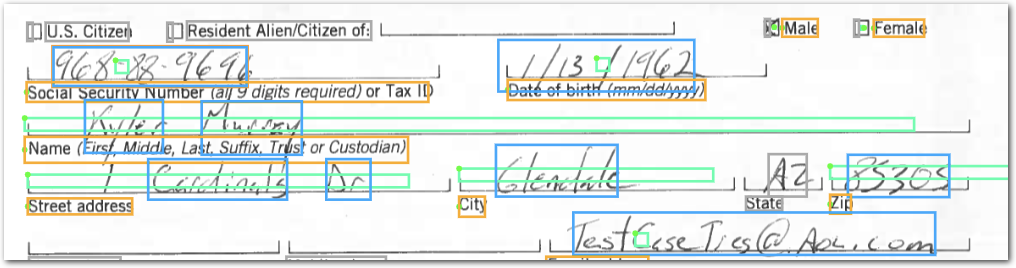 U.S. Citizen Resident Alien/Citizen of: Male Female
968-88-9696 1/13/1962
Social Security Number (all 9 digits required) or Tax ID Date of birth (mm/dd/yyyy)
Kyler Murray
Name (First, Middle, Last, Suffix, Trust or Custodian)
1 Cardinals Dr Glendale AZ 85305
Street address City State Zip
TestCaseTies@Aol.com